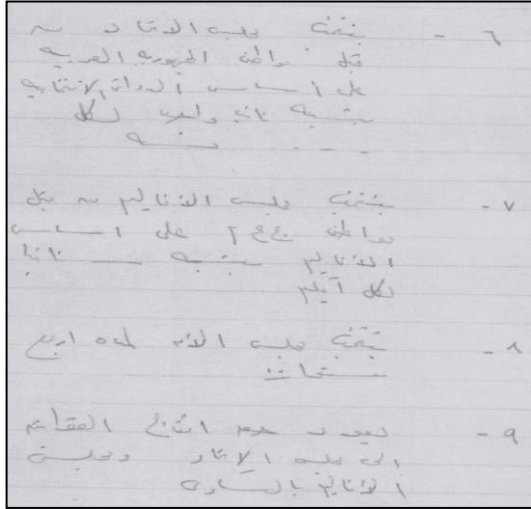 ٦ - ينتخب مجلس الاتحاد من
قبل مواطني الجمهورية العربية
على اساس الدوائر الانتخابية
بنسبة نائب واحد لكل
نسمه
٧ - ينتخب مجلس الاقاليم من قبل
مواطني ج ع م على اساس
الاقاليم بنسبة نائبا
لكل اقليم
٨ - ينتخب مجلس الامه لمدة اربع
سنوات
٩ - يعود حق اقتراح القوانين
الى مجلس الاتحاد ومجلس
الاقاليم بالتساوي